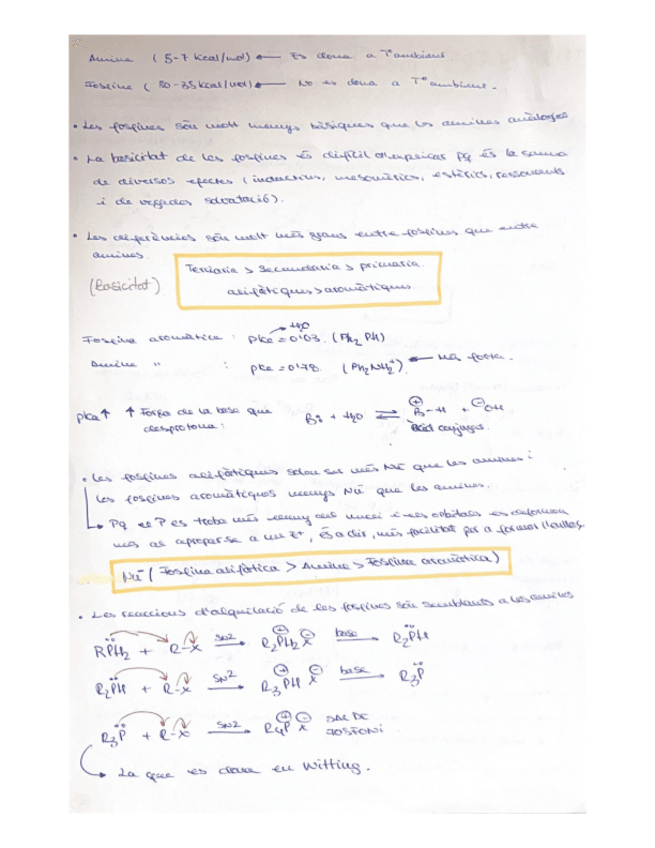 Amina ( 5-7 kcal/mol) ← Es dona a Tª ambient
Fosfina ( 30-35 kcal/mol) ← No es dona a Tª ambient.
• Les fosfines són molt menys bàsiques que les amines anàlogues
• La basicitat de les fosfines és difícil d'explicar pq és la suma
de diversos efectes ( inductius, mesomèrics, estèrics, ressonants
i de vegades solvatació).
• Les diferències són molt més grans entre fosfines que entre
amines.
(Basicitat)
Terciaria > Secundaria > primaria
alifàtiques > aromàtiques
H2O
Fosfina aromàtica : pKa = 0'03. (Ph2 PH)
Amina " : pKa = 0'78. (Ph2NH2+) ← Més forta.
pKa↑ ↑ Força de la base que
desprotona :
B: + H2O ⇌ B⊕-H + ⊖OH
àcid conjugat.
• Les fosfines alifàtiques solen ser més Nu- que les amines i
les fosfines aromàtiques menys Nu- que les amines.
↳ Pq el P es troba més lluny del nucli i els orbitals es deformen
més al apropar-se a un E+, és a dir, més facilitat per a formar l'enllaç.
Nu- ( Fosfina alifàtica > Amina > Fosfina aromàtica)
• Les reaccions d'alquilació de les fosfines són semblants a les amines
RPH2 + R-X SN2 → R2PH2⊕ X⊖ base → R2PH
R2PH + R-X SN2 → R3PH⊕ X⊖ base → R3P
R3P + R-X SN2 → R4P⊕ X⊖ SAL DE
FOSFONI
↳ La que es dona en Witting.